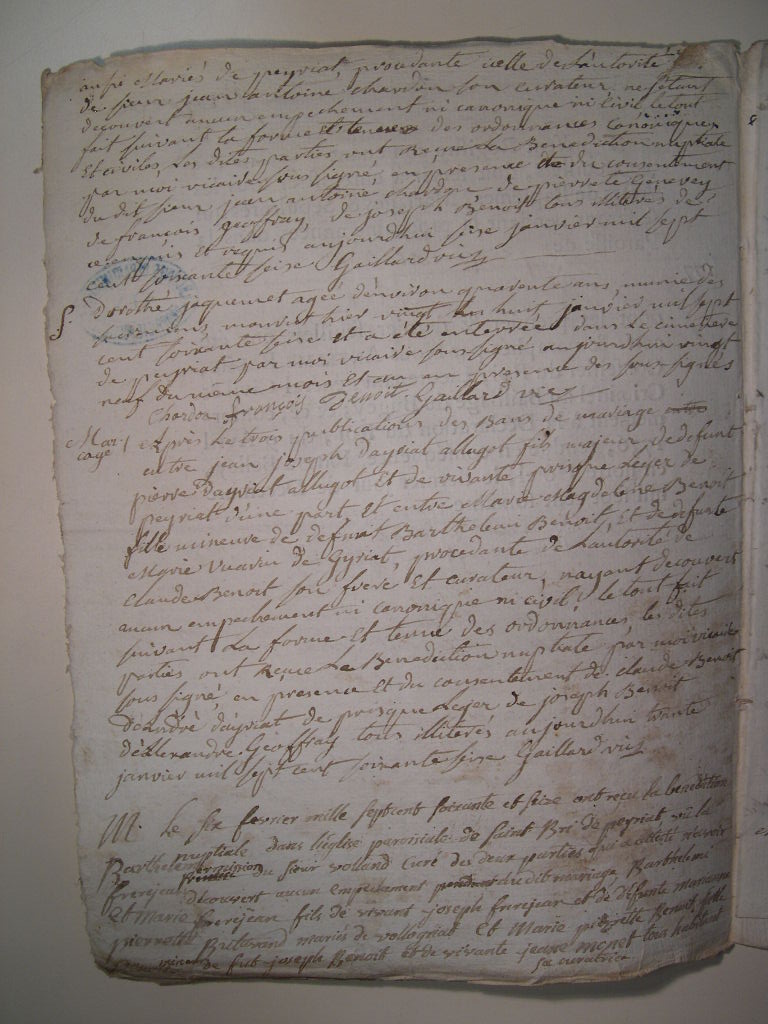 aussi Mariés de peyriat, procedante icelle de L'autorité
de sieur jean antoine chardon son curateur, ne s'etant
decouvert aucun empechement ni canonique ni Civil le tout
fait suivant la forme et teneur des ordonnances canoniques
Et civiles, Les dites parties ont Reçue La Benediction nuptiale
par moi vicaire sous signé, en presence et du consentement
du dit sieur jean antoine chardon de pierre te Genevey
de françois geoffray, de joseph Benoit tous illiterés de
ce enquis et requis aujourdhui sise janvier mil sept
cent soixante seise Gaillard vic
S. Dorothé jaquemet agée d'environ quarente ans, munie des
sacremens, mourut hier vingt huit janvier mil sept
cent soixante seise et a été enterrée dans Le cimetiere
de peyriat par moi vicaire sous signé aujourdhui vingt
neuf du même mois et an en presence des sous signés
Chardon françois Benoit Gaillard vic
Mariage / après Les trois publications des Bans de mariage
entre jean joseph Dayriat allugot fils majeur de defunt
pierre Dayriat allugot Et de vivante prisque Leger de
peyriat d'une part Et entre Marie Magdeleine Benoit
fille mineure de defunt Barthelemi Benoit, Et de defunte
Marie vuarin de Gyriat, procedante de L'autorité de
Claude Benoit son frere Et curateur, n'ayant decouvert
aucun empechement ni canonique ni civil, le tout fait
suivant La forme Et teneur des ordonnances, les dites
parties ont Reçue La Benediction nuptiale par moi vicaire
sous signé, en presence Et du consentement de claude Benoit
D'andré dayriat de prisque Leger de joseph Benoit
d'alexandre Geoffray tous illiterés aujourdhui trante
janvier mil sept cent soixante seise Gaillard vic
M. Le six fevrier mille septcent soixante et seize ont recu la benediction
nuptiale dans l'eglise paroissiale de Saint de peyriat vu la
permission du sieur volland curé des deux parties qui a attesté n'avoir
découvert aucun empechement audit mariage, Barthelemi
frerejean fils de vivant joseph frerejean et de défunte marianne
mariés de volognat Et Marie pierrette Benoit fille
mineure de fut joseph Benoit et de vivante jeanne monet tous habitant
sa curatrice